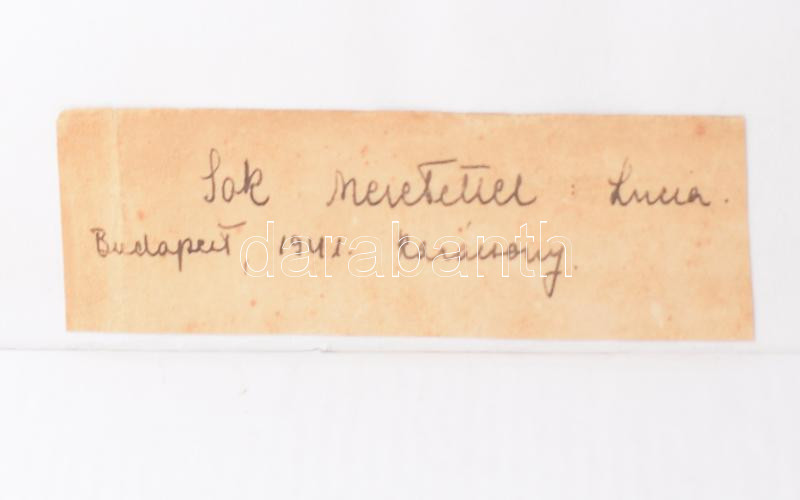 Sok szeretettel: Lucia.
Budapest, 1941. Karácsony.
darabanth